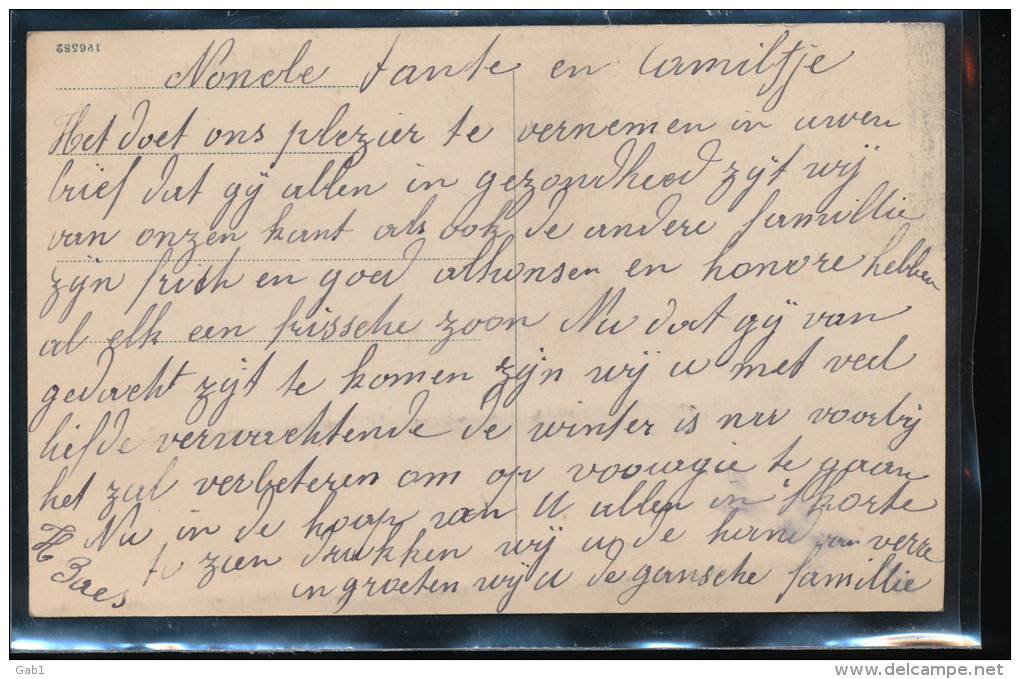 126582
Nonole tante en Camiltje
Het doet ons plezier te vernemen in uwen
brief dat gij allen in gezondheid zijt wij
van onzen kant als ook de andere famillie
zijn frisch en goed alhonsen en honore hebben
al elk een frissche zoon Nu dat gij van
gedacht zijt te komen zijn wij u met veel
liefde verwachtende de winter is nu voorbij
het zal verbeteren om op voowagie te gaan
Nu in de hoop van U allen in 't korte
te zien drukken wij u de hand van verre
en groeten wij u de gansche famillie
H Baes
Gab1
www.delcampe.net